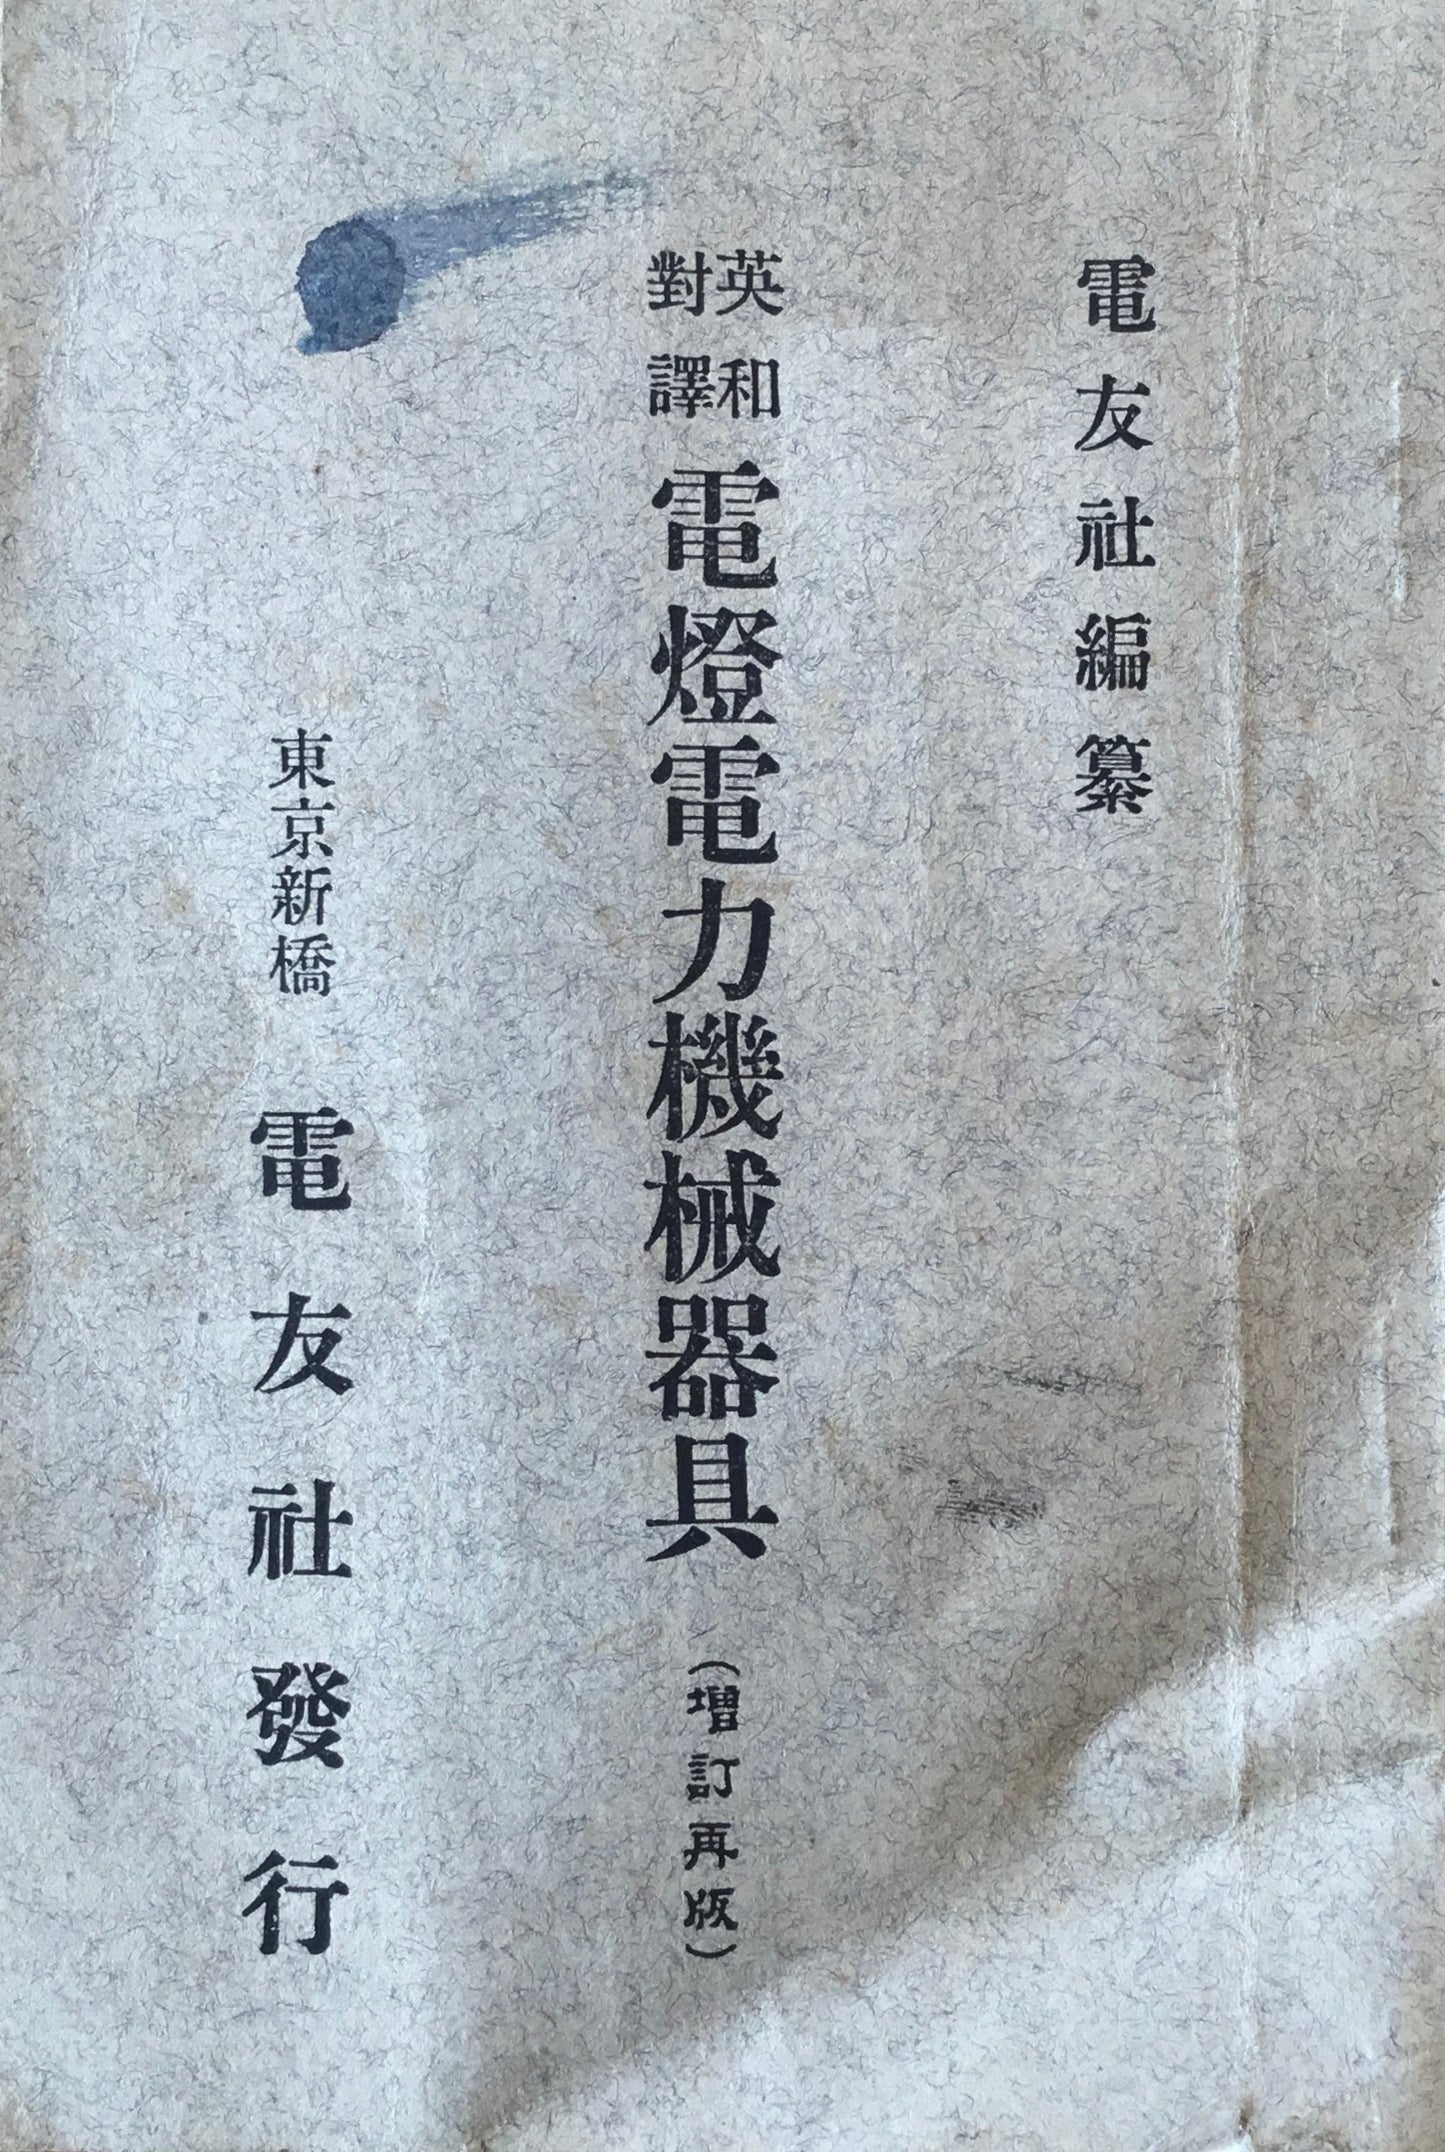 電友社編纂
英和
對譯
電燈電力機械器具(增訂再版)
東京新橋 電友社發行